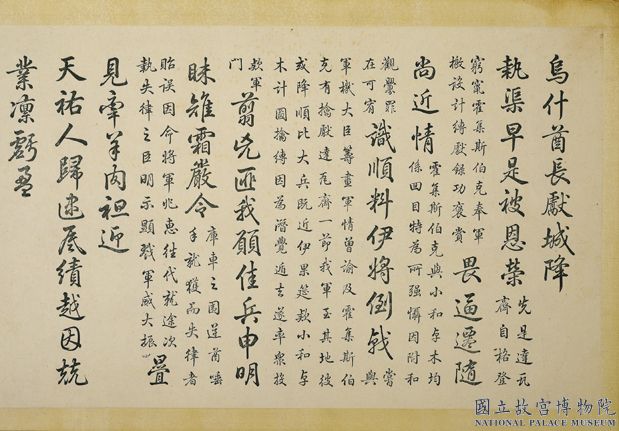 烏什酋長獻城降
執渠早是被恩榮
先是達瓦
齊自格登
窮竄霍集斯伯克奉軍
檄設計縛獻錄功褒賞
畏逼遷隨
尚近情
霍集斯伯克與小和卓木均
係回目特為所强懾因附和
觀釁罪
在可宥
識順料伊將倒戟
嘗
與
軍機大臣籌畫軍情曾諭及霍集斯伯
克有擒獻達瓦齊一節我軍至其地彼
或降順比大兵既近伊果筵款小和卓
木計圖擒縛因為潛覺遁去遂率眾投
款軍
門
翦兇匪我願佳兵申明
昧雉霜嚴令
庫車之圍逆酋唾
手就獲而失律者
貽誤因令將軍兆惠往代就途次
執失律之臣明示顯戮軍威大振
疊
見牽羊肉袒迎
天祐人歸逮底績越因兢
業凜虧盈
國立故宮博物院
NATIONAL PALACE MUSEUM